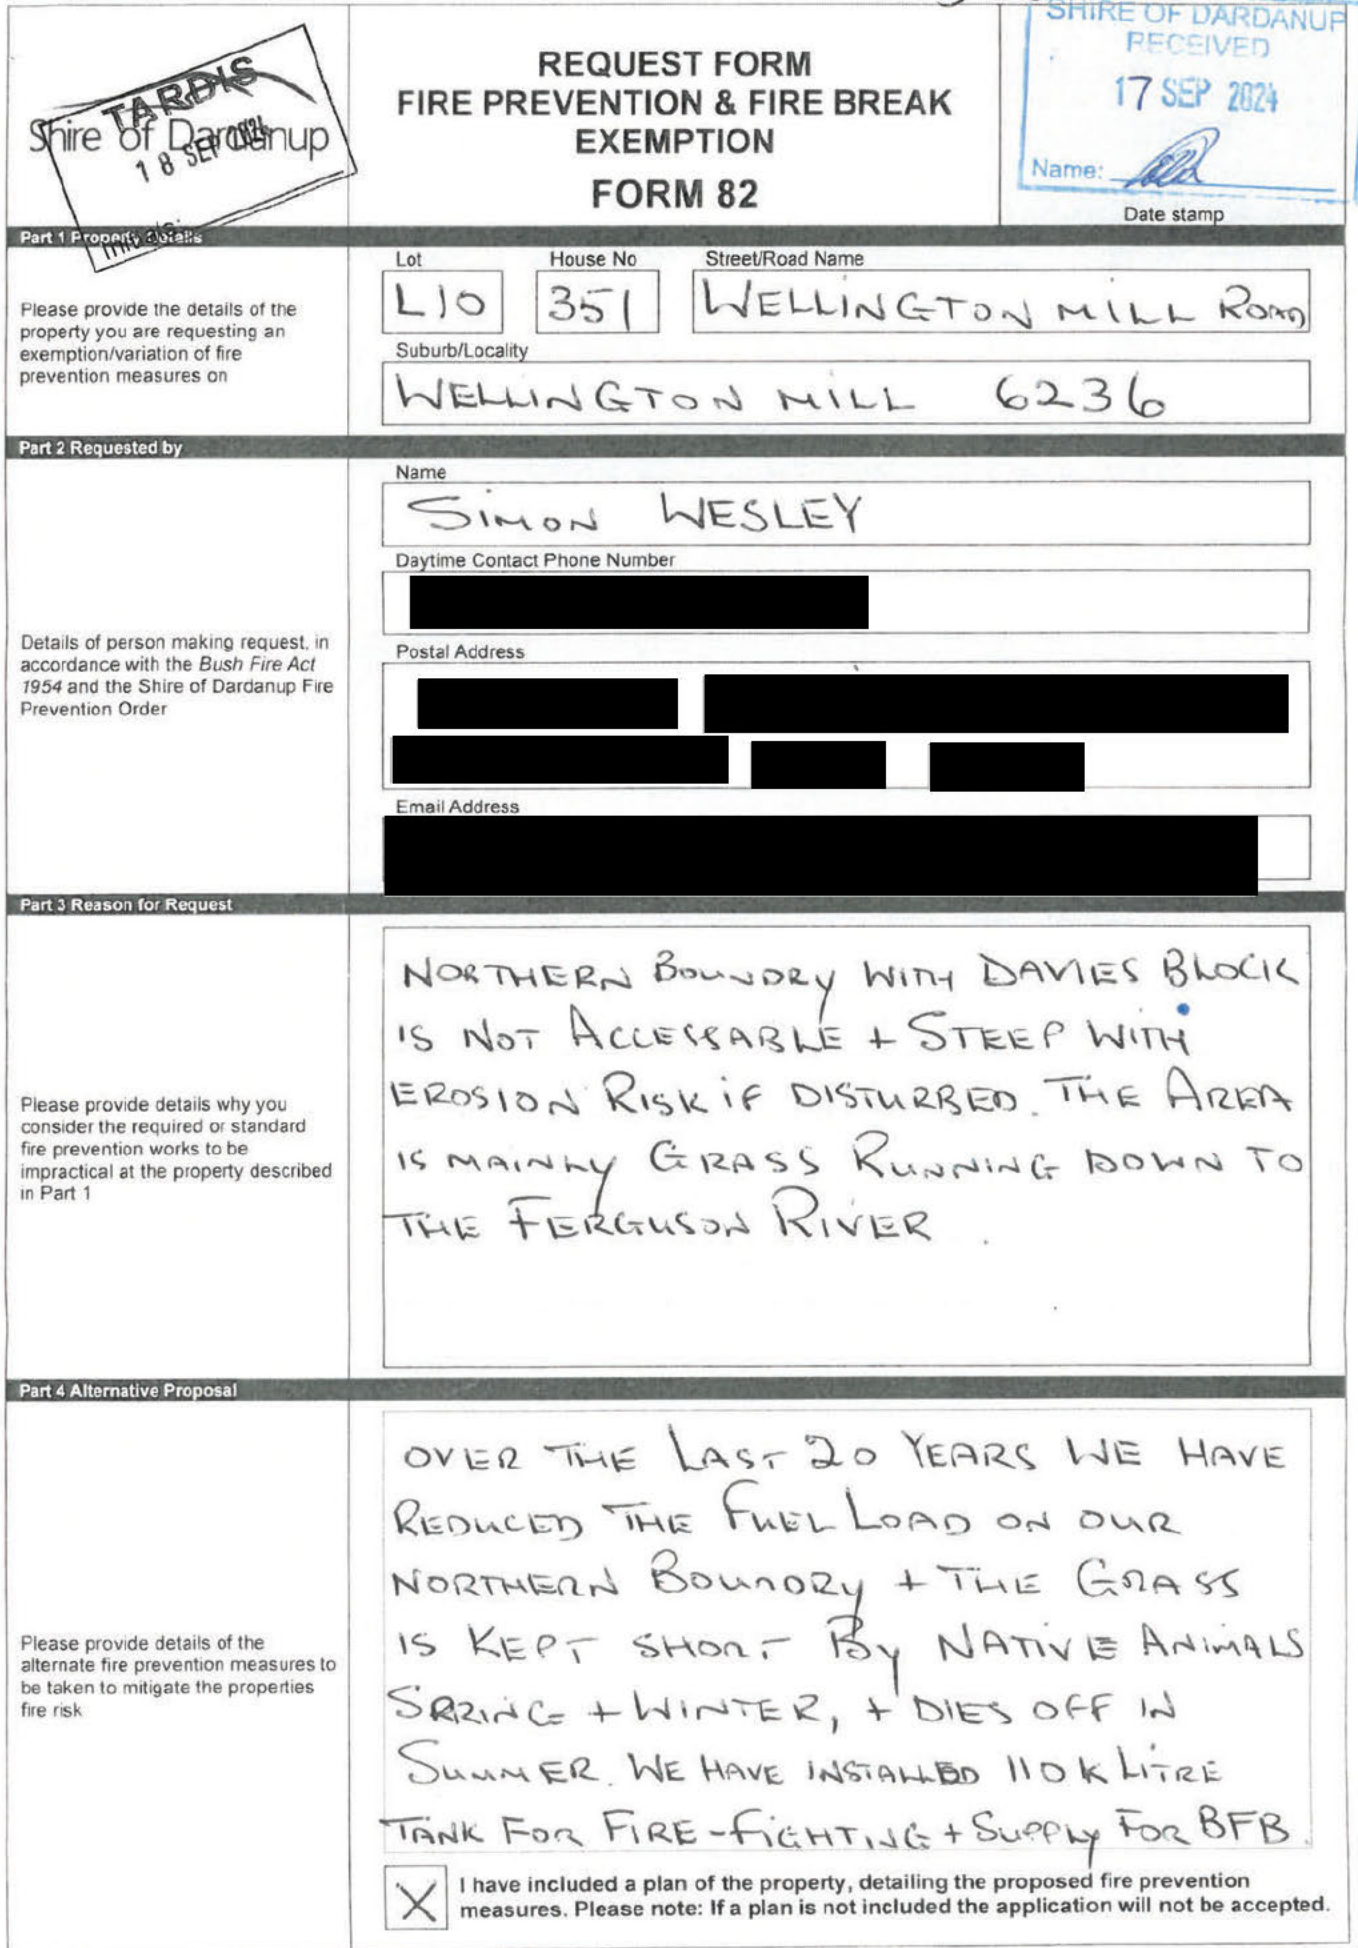 SHIRE OF DARDANUP
RECEIVED
17 SEP 2024
Name:
Date stamp
TARDIS
Shire of Dardanup
18 SEP 2024
Initials:
REQUEST FORM
FIRE PREVENTION & FIRE BREAK
EXEMPTION
FORM 82
Part 1 Property Details
Please provide the details of the
property you are requesting an
exemption/variation of fire
prevention measures on
Lot House No Street/Road Name
L10 351 WELLINGTON MILL ROAD
Suburb/Locality
WELLINGTON MILL 6236
Part 2 Requested by
Details of person making request, in
accordance with the Bush Fire Act
1954 and the Shire of Dardanup Fire
Prevention Order
Name
SIMON WESLEY
Daytime Contact Phone Number
Postal Address
Email Address
Part 3 Reason for Request
Please provide details why you
consider the required or standard
fire prevention works to be
impractical at the property described
in Part 1
NORTHERN BOUNDRY WITH DAVIES BLOCK
IS NOT ACCESSABLE + STEEP WITH
EROSION RISK IF DISTURBED. THE AREA
IS MAINLY GRASS RUNNING DOWN TO
THE FERGUSON RIVER.
Part 4 Alternative Proposal
Please provide details of the
alternate fire prevention measures to
be taken to mitigate the properties
fire risk
OVER THE LAST 20 YEARS WE HAVE
REDUCED THE FUEL LOAD ON OUR
NORTHERN BOUNDRY + THE GRASS
IS KEPT SHORT BY NATIVE ANIMALS
SPRING + WINTER, + DIES OFF IN
SUMMER. WE HAVE INSTALLED 110K LITRE
TANK FOR FIRE-FIGHTING + SUPPLY FOR BFB.
X I have included a plan of the property, detailing the proposed fire prevention
measures. Please note: If a plan is not included the application will not be accepted.